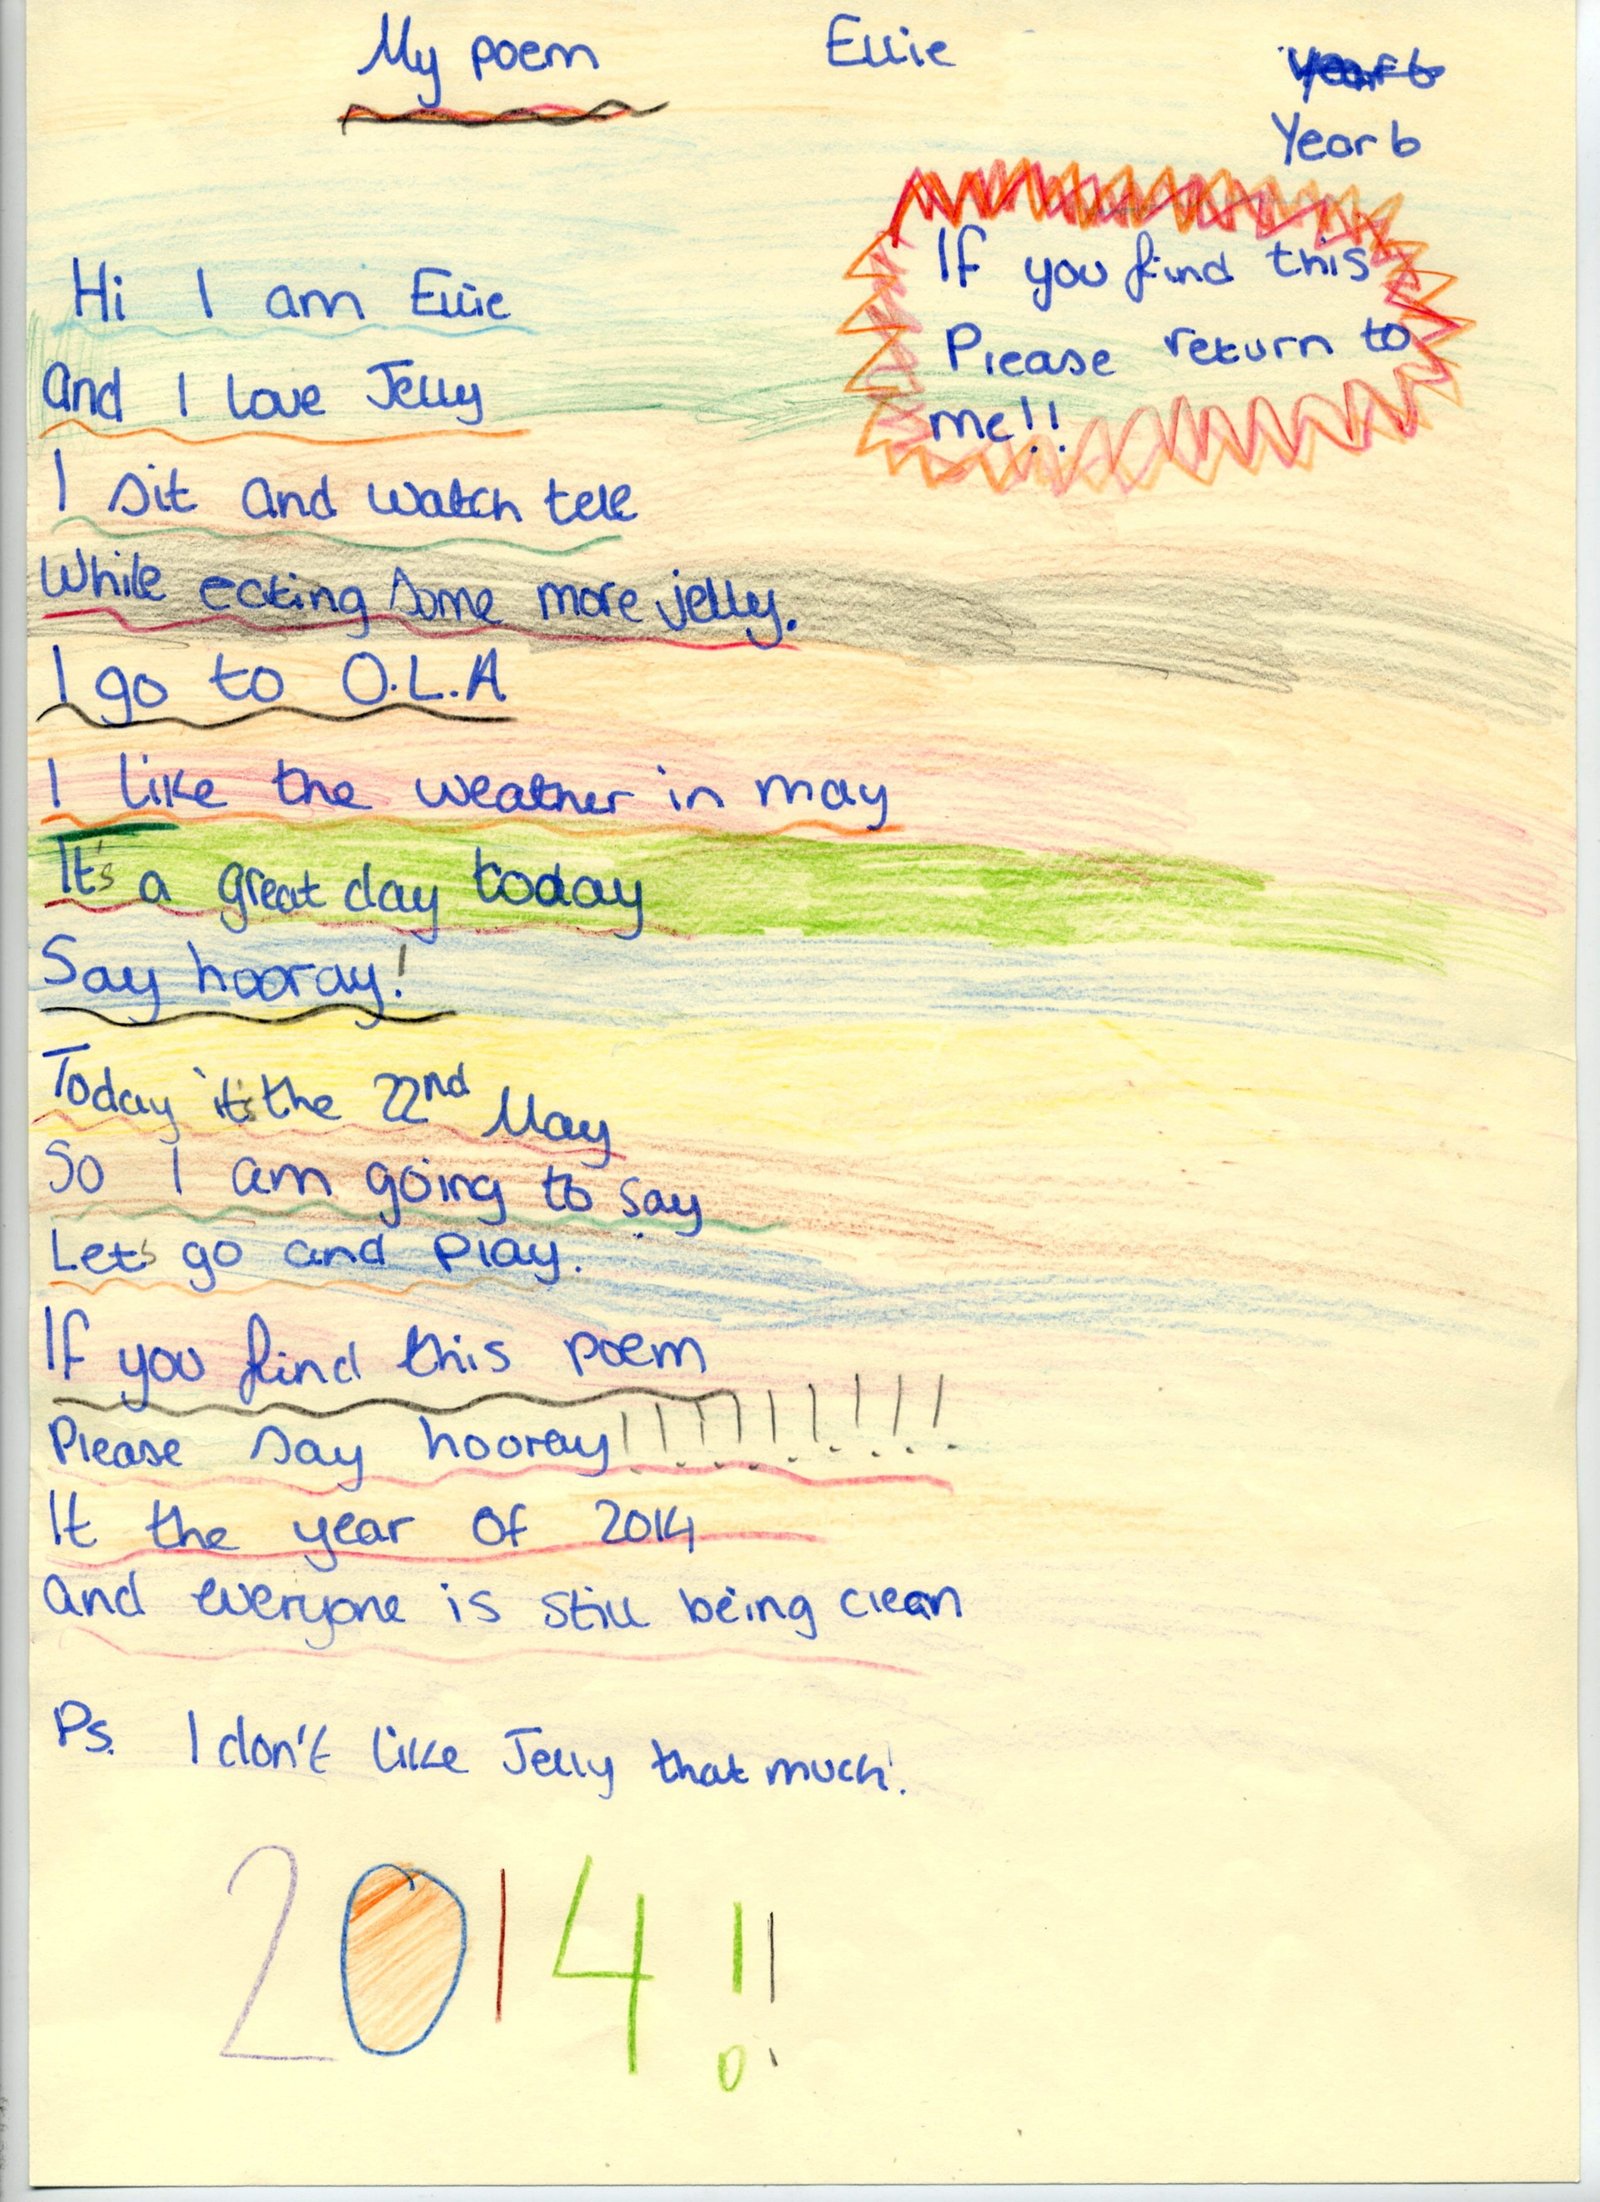 My poem
Ellie
Year 6
Year 6
If you find this
Please return to
me!!
Hi I am Ellie
and I love Jelly
I sit and watch tele
While eating some more jelly.
I go to O.L.A
I like the weather in may
It's a great day today
Say hooray!
Today it's the 22nd May
So I am going to say
Let's go and play.
If you find this poem
Please say hooray!!!!!!!!!
It the year of 2014
and everyone is still being clean
Ps. I don't like Jelly that much!
2014!!